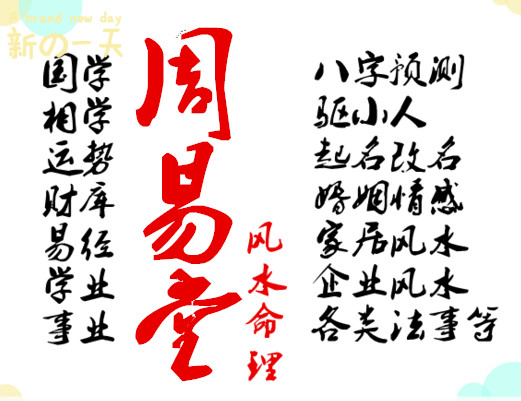 A brand new day
新の一天
国学
相学
运势
财库
易经
学业
事业
周易堂
风水命理
八字预测
驱小人
起名改名
婚姻情感
家居风水
企业风水
各类法事等